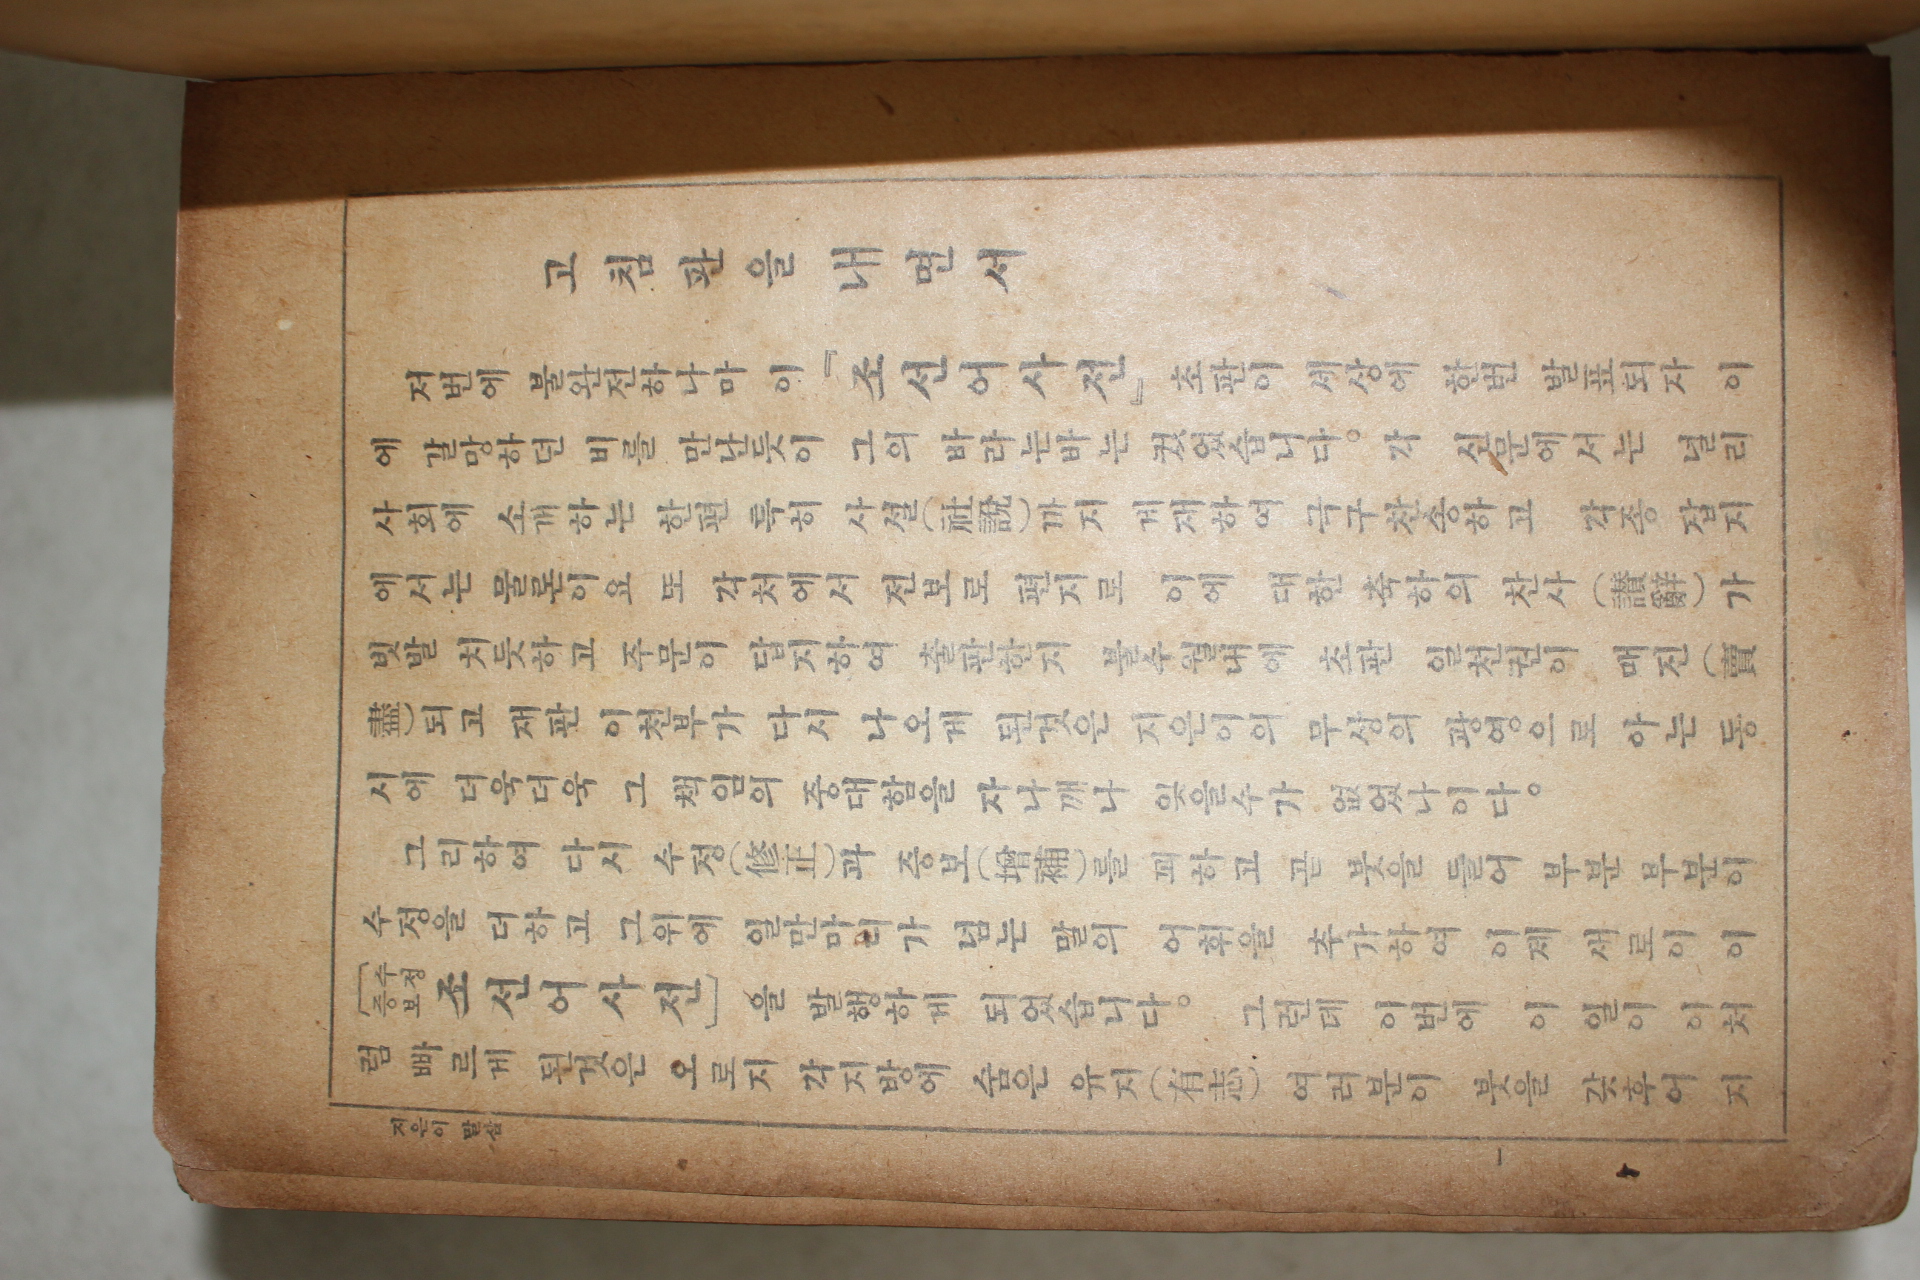 고침판을 내면서
저번에 불완전하나마 이 『조선어사전』 초판이 세상에 한번 발표되자 이
에 갈망하던 비를 만난듯이 그의 바라는바는 컸었습니다。 각 신문에서는 널리
사회에 소개하는 한편 특히 사설(社說)까지 게재하여 극구찬송하고 각종 잡지
에서는 물론이요 또 각처에서 전보로 편지로 이에 대한 축하의 찬사(讃辭)가
빗발 치듯하고 주문이 답지하여 출판한지 불수월내에 초판 일천권이 매진(賣
盡)되고 재판 이천부가 다시 나오게 된것은 지은이의 무상의 광영으로 아는 동
시에 더욱더욱 그 책임의 중대함을 자나깨나 잊을수가 없었나이다。
그리하여 다시 수정(修正)과 증보(增補)를 꾀하고 곧 붓을 들어 부분 부분이
수정을 더하고 그위에 일만마디가 넘는 말의 어휘을 추가하여 이제 새로이 이
[수정증보 조선어사전]을 발행하게 되었습니다。 그런대 이번에 이 일이 이처
럼 빠르게 된것은 오로지 각지방에 숨은 유지(有志) 여러분이 붓을 갖후어 지
지은이 말삼
一